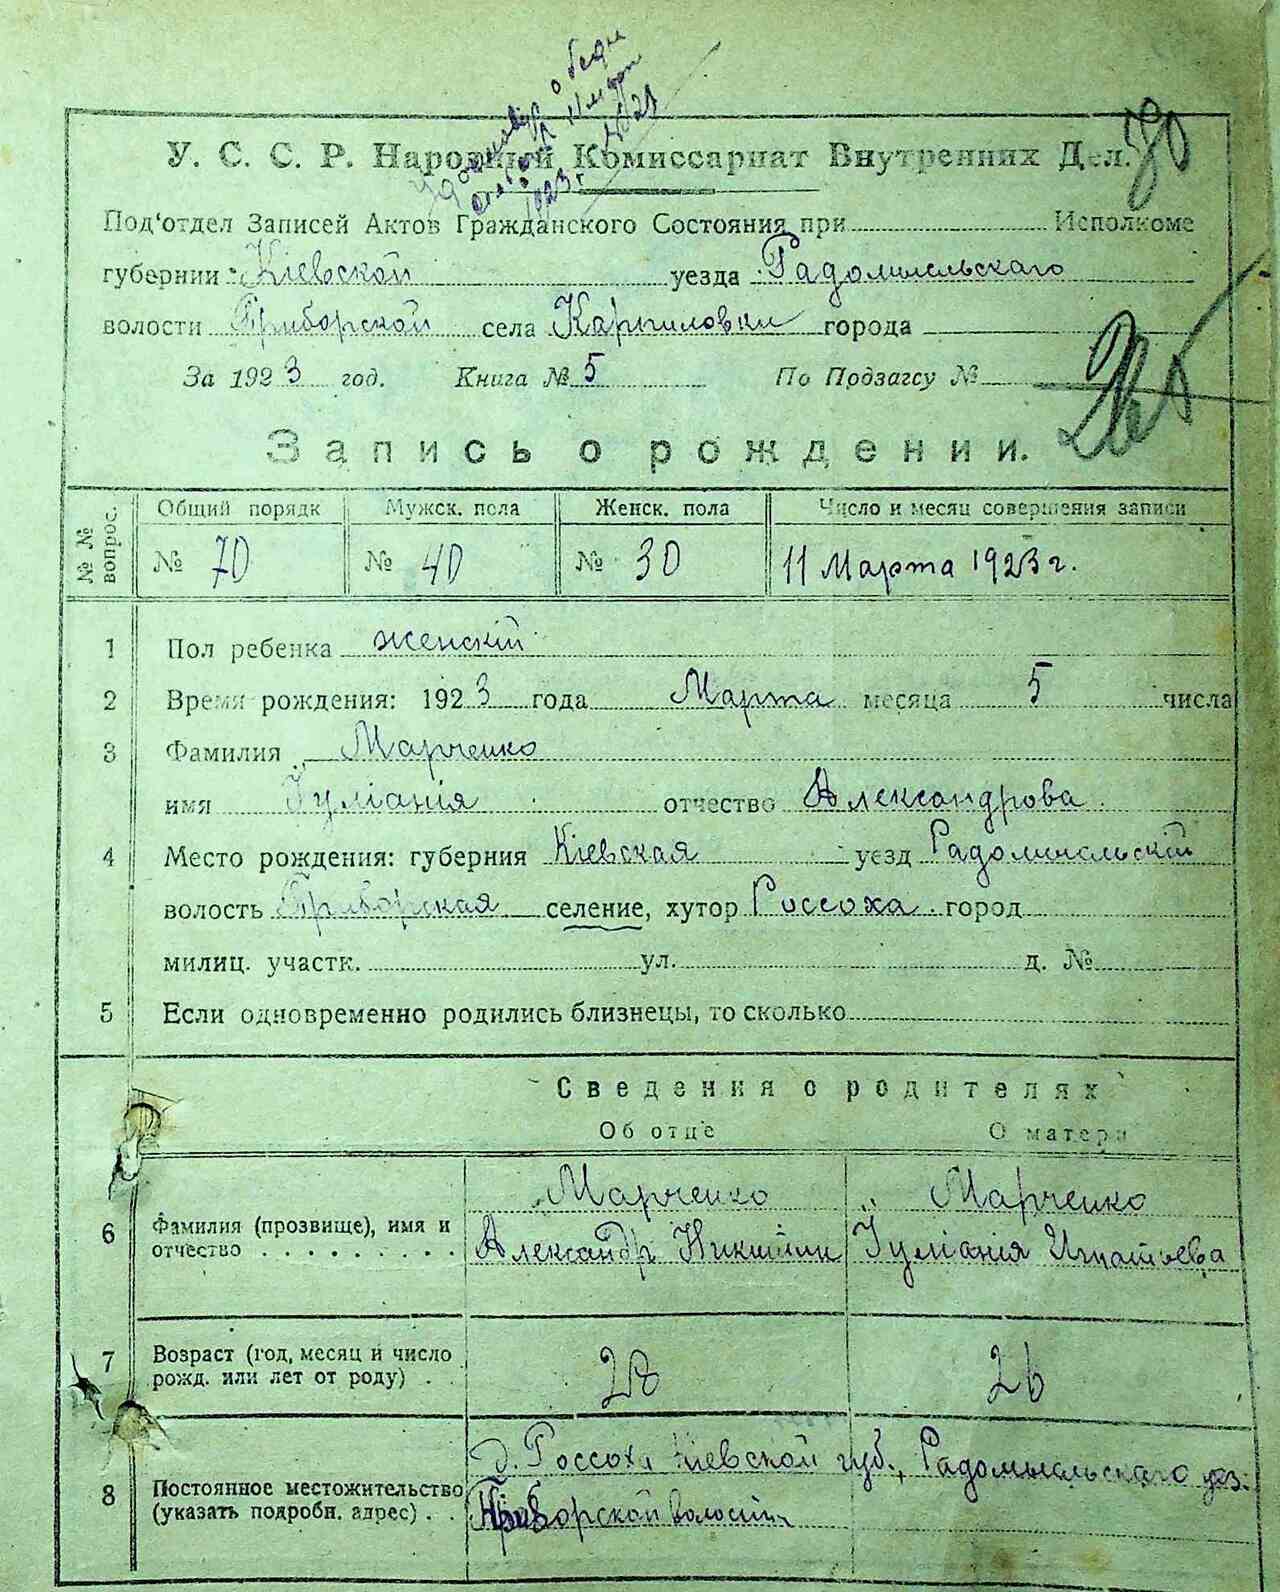 1923 г.
У. С. С. Р. Народный Комиссариат Внутренних Дел.
Под'отдел Записей Актов Гражданского Состояния при Исполкоме
губернии Кіевской уезда Радомысльскаго
волости Приборской села Карпиловки города
За 1923 год. Книга № 5 По Подзагсу №
Запись о рождении.
№ № вопрос. Общий порядк Мужск. пола Женск. пола Число и месяц совершения записи
№ 70 № 40 № 30 11 Марта 1923 г.
1 Пол ребенка женскій
2 Время рождения: 1923 года Марта месяца 5 числа
3 Фамилия Марченко
имя Іуліанія отчество Александрова
4 Место рождения: губерния Кіевская уезд Радомысльскій
волость Приборская селение, хутор Россоха город
милиц. участк. ул. д. №
5 Если одновременно родились близнецы, то сколько
Сведения о родителях
Об отце О матери
Марченко Марченко
6 Фамилия (прозвище), имя и отчество Александр Никитин Іуліанія Игнатьева
7 Возраст (год, месяц и число рожд. или лет от роду) 28 26
д. Россоха Кіевской губ., Радомысльскаго уез.
8 Постоянное местожительство (указать подробн. адрес) Приборской волости